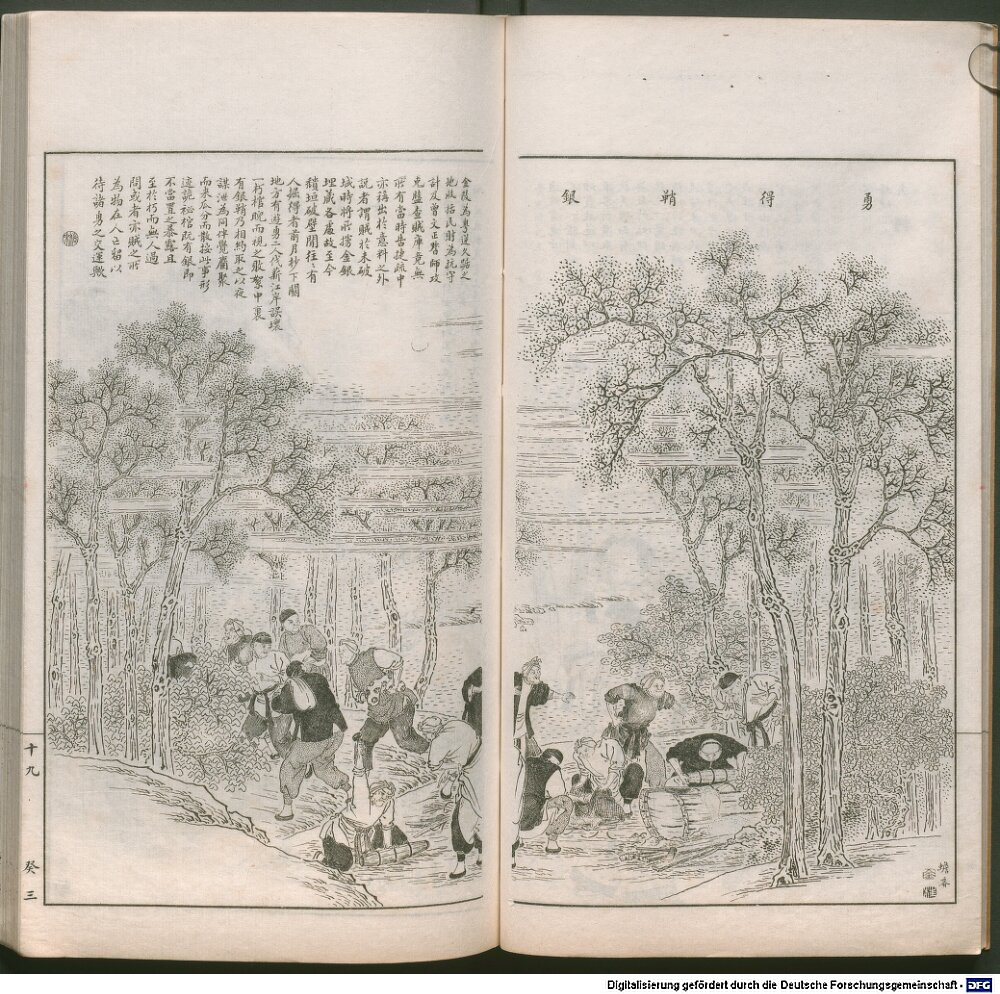 勇得鞘銀
金陵為粵逆久踞之
地故括民財為抗守
計及曾文正督師攻
克盤查賊庫竟無
所有當時告捷疏中
亦稱出於意料之外
說者謂賊於未破
城時將所擄金銀
埋藏各處故至今
頹垣破壁間往々有
人掘得者前月抄下關
地方有遊勇二人伐薪江岸誤壞
一朽棺睨而視之敗絮中裹
有銀鞘乃相約取之以夜
謀洩為同伴覺麕聚
而來瓜分而散按此事形
迹詭秘棺既有銀即
不當置之暴露且
至於朽而無人過
問或者亦賊之所
為物在人亡留以
待諸勇之交運歟
蟾香
十九
癸三
Digitalisierung gefördert durch die Deutsche Forschungsgemeinschaft - DFG